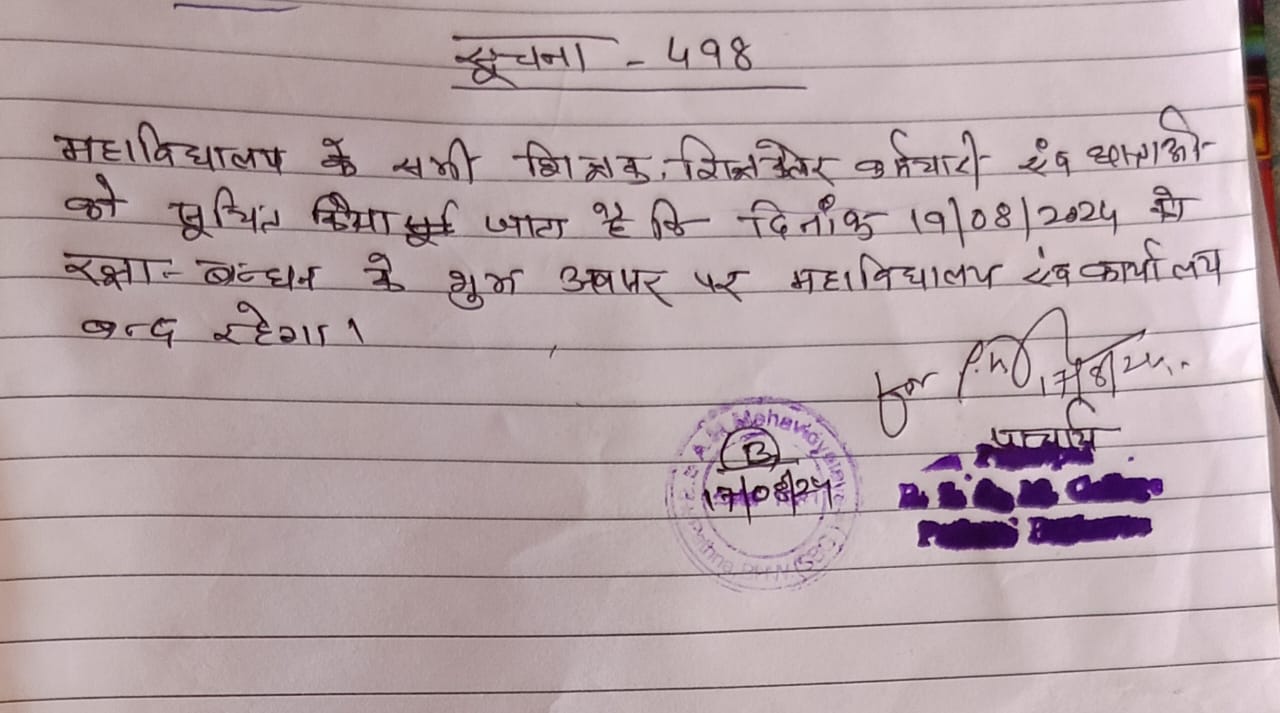 सूचना - 498
महाविद्यालय के सभी शिक्षक, शिक्षकेतर कर्मचारी एंव छात्राओं
को सूचित किया जाता है कि दिनांक 19/08/2024 को
रक्षा-बन्धन के शुभ अवसर पर महाविद्यालय एंव कार्यालय
बन्द रहेगा।
for 17/8/24
प्राचार्य
Mahavidyalaya
B
17/08/24